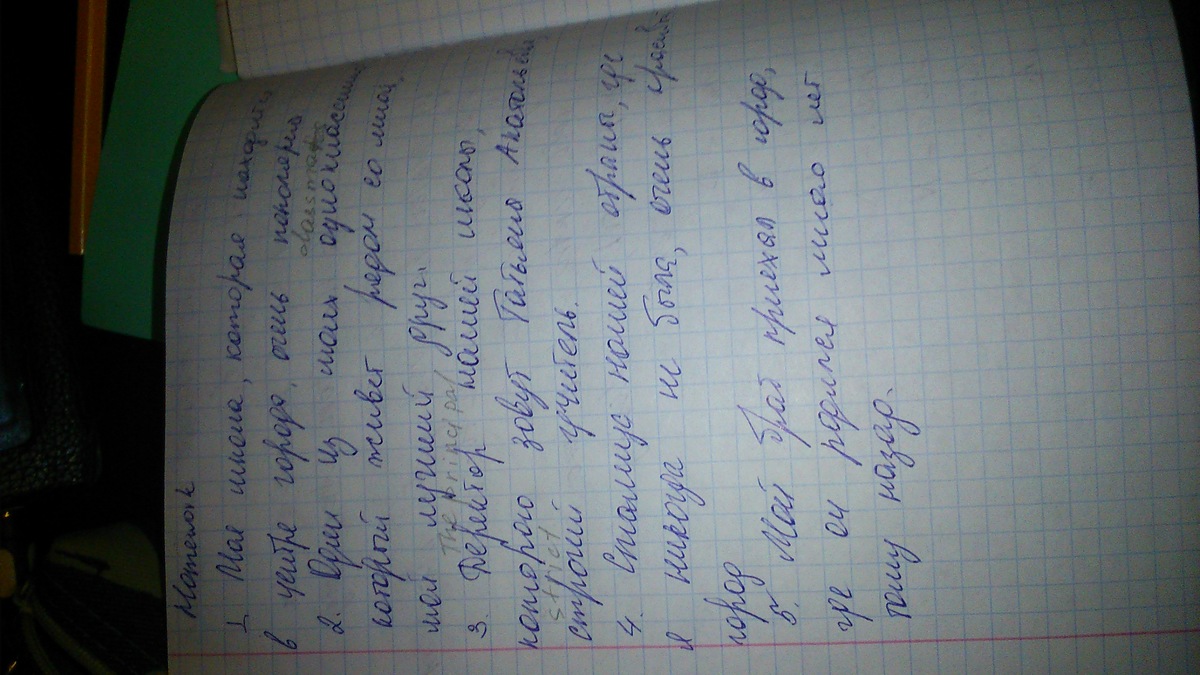 Мотолок
1. Моя школа, которая находится
в центре города, очень популярна
classmates
2. Один из моих одноклассников
который живет рядом со мной,
мой лучший друг.
The principal
3. Деректор нашей школы,
которого зовут Татьяна Анатольевна
strict
строгий учитель.
4. Столица нашей страны, где
я никогда не была, очень красивый
город
5. Мой брат приехал в город,
где он родился много лет
тому назад.